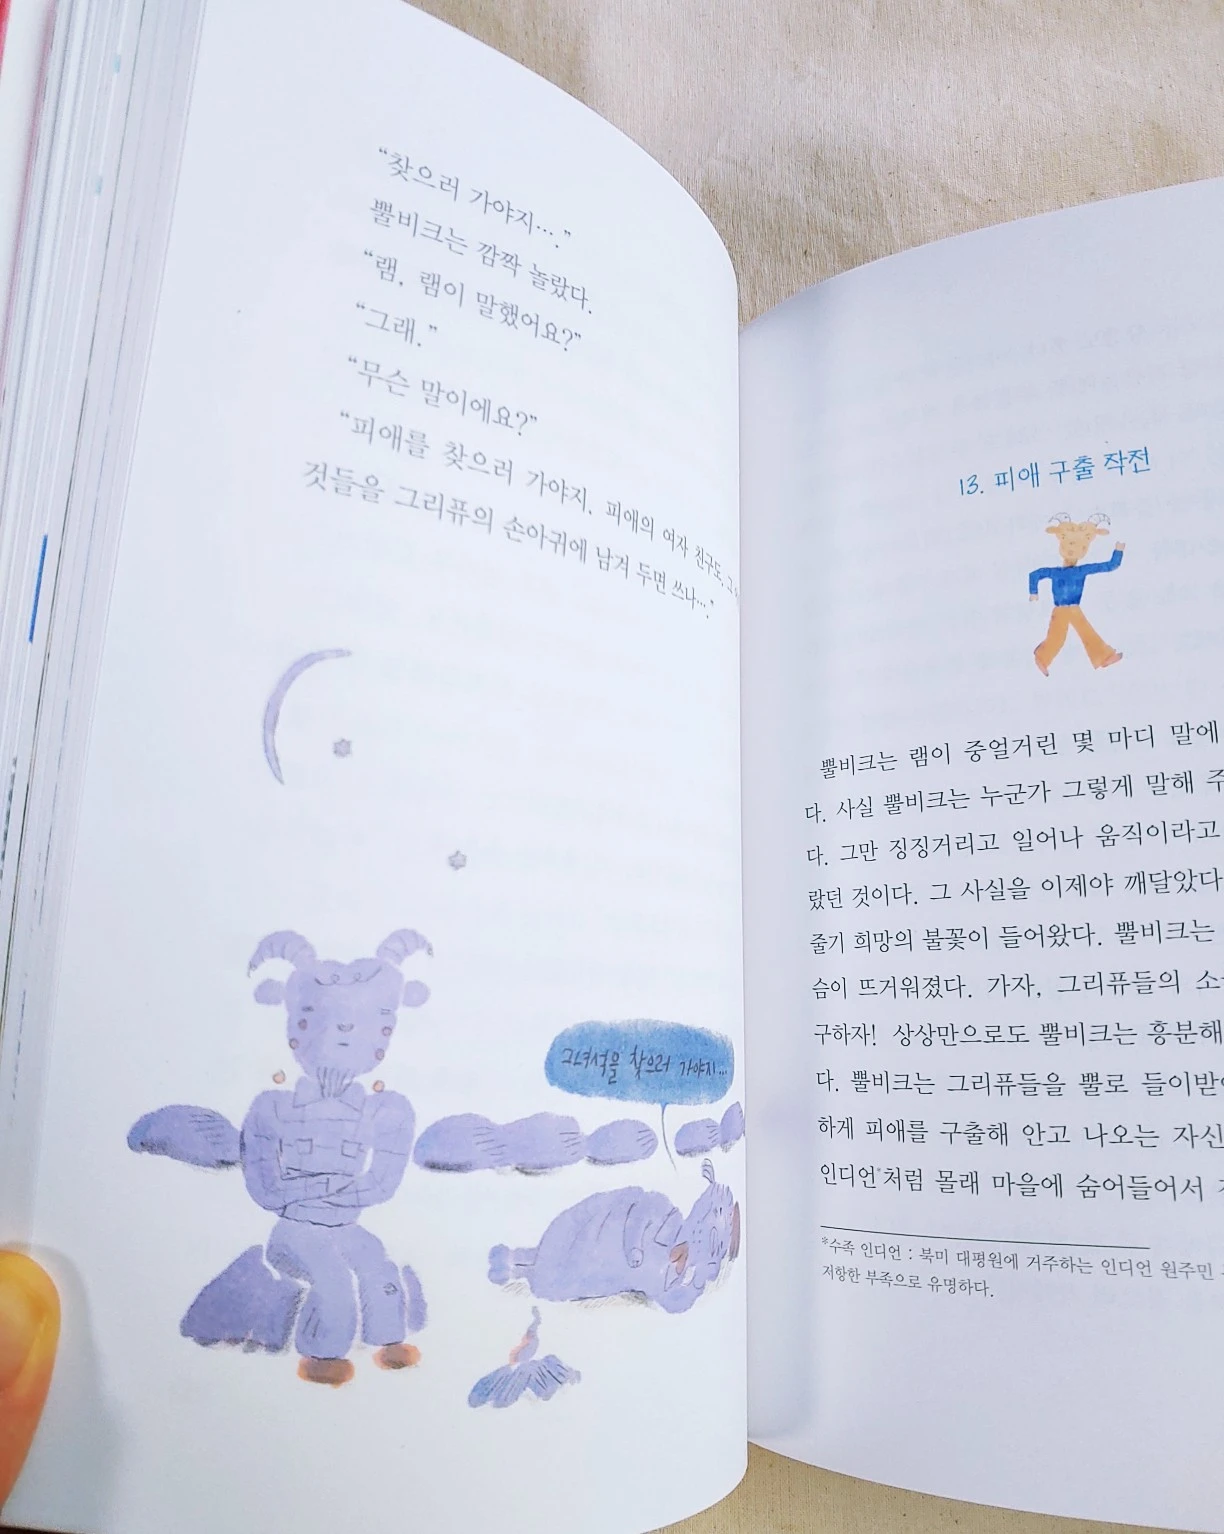 “찾으러 가야지….”
뿔비크는 깜짝 놀랐다.
“램, 램이 말했어요?”
“그래.”
“무슨 말이에요?”
“피애를 찾으러 가야지. 피애의 여자 친구도. 그
것들을 그리퓨의 손아귀에 남겨 두면 쓰나….”
그녀석을 찾으러 가야지…
13. 피애 구출 작전
뿔비크는 램이 중얼거린 몇 마디 말에
다. 사실 뿔비크는 누군가 그렇게 말해 주
다. 그만 징징거리고 일어나 움직이라고
랐던 것이다. 그 사실을 이제야 깨달았다
줄기 희망의 불꽃이 들어왔다. 뿔비크는
슴이 뜨거워졌다. 가자, 그리퓨들의 소
구하자! 상상만으로도 뿔비크는 흥분해
다. 뿔비크는 그리퓨들을 뿔로 들이받
하게 피애를 구출해 안고 나오는 자신
인디언*처럼 몰래 마을에 숨어들어서
*수족 인디언 : 북미 대평원에 거주하는 인디언 원주민
저항한 부족으로 유명하다.